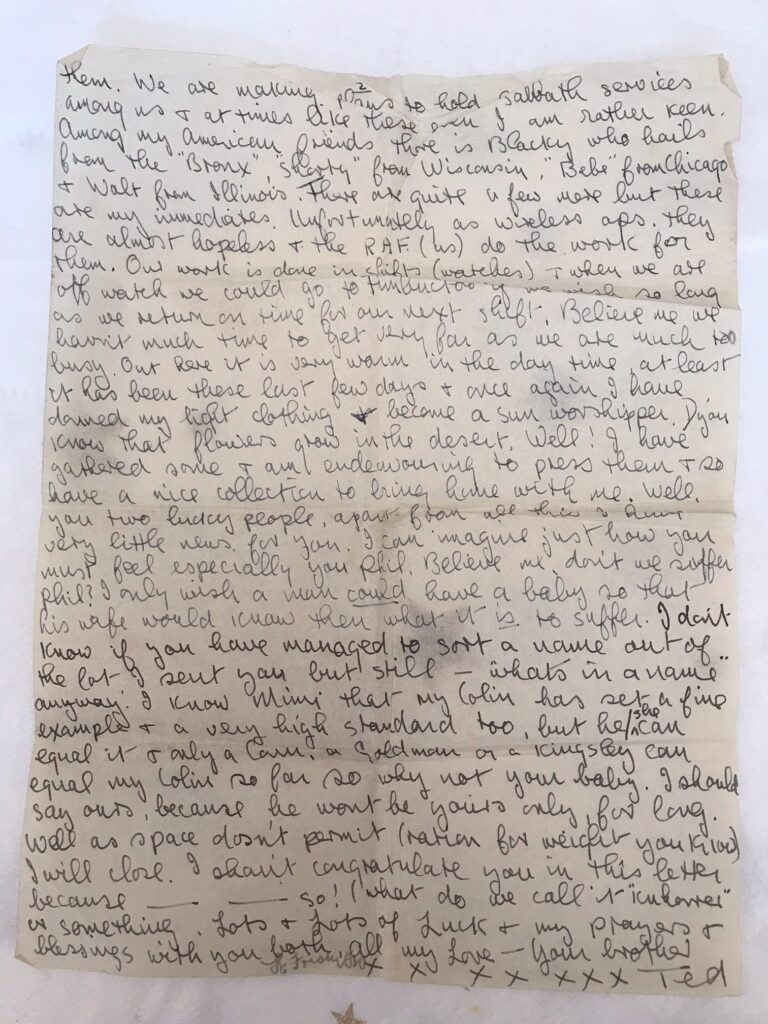 2
them. We are making plans to hold sabbath services
among us & at times like these even I am rather keen.
Among my American friends there is Blacky who hails
from the "Bronx", "Shorty" from Wisconsin, "Bebe" from Chicago
& Walt from Illinois. There are quite a few more but these
are my immediates. Unfortunately as wireless ops. they
are almost hopeless & the RAF (us) do the work for
them. Our work is done in shifts (watches) & when we are
off watch we could go to Timbuctoo if we wish so long
as we return on time for our next shift. Believe me we
havn't much time to get very far as we are much too
busy. Out here it is very warm in the day time, at least
it has been these last few days & once again I have
donned my light clothing & became a sun worshipper. D'you
know that flowers grow in the desert. Well! I have
gathered some & am endeavouring to press them & so
have a nice collection to bring home with me. Well,
you two lucky people, apart from all this I havnt
very little news for you. I can imagine just how you
must feel especially you Phil. Believe me, don't we suffer
Phil? I only wish a man could have a baby so that
his wife would know then what it is to suffer. I don't
know if you have managed to sort a name out of
the lot I sent you but still — "whats in a name"
anyway. I know Mimi that my Colin has set a fine
example & a very high standard too, but he/she can
equal it & only a Cann, a Goldman or a Kingsley can
equal my Colin so far so why not your baby. I should
say ours, because he wont be yours only for long.
Well as space dosn't permit (ration for weight you know)
I will close. I shan't congratulate you in this letter
because —— —— so! (what do we call it
or something. Lots & Lots of Luck & my prayers &
blessings with you both, all my Love — Your brother
x x x x x x x Ted